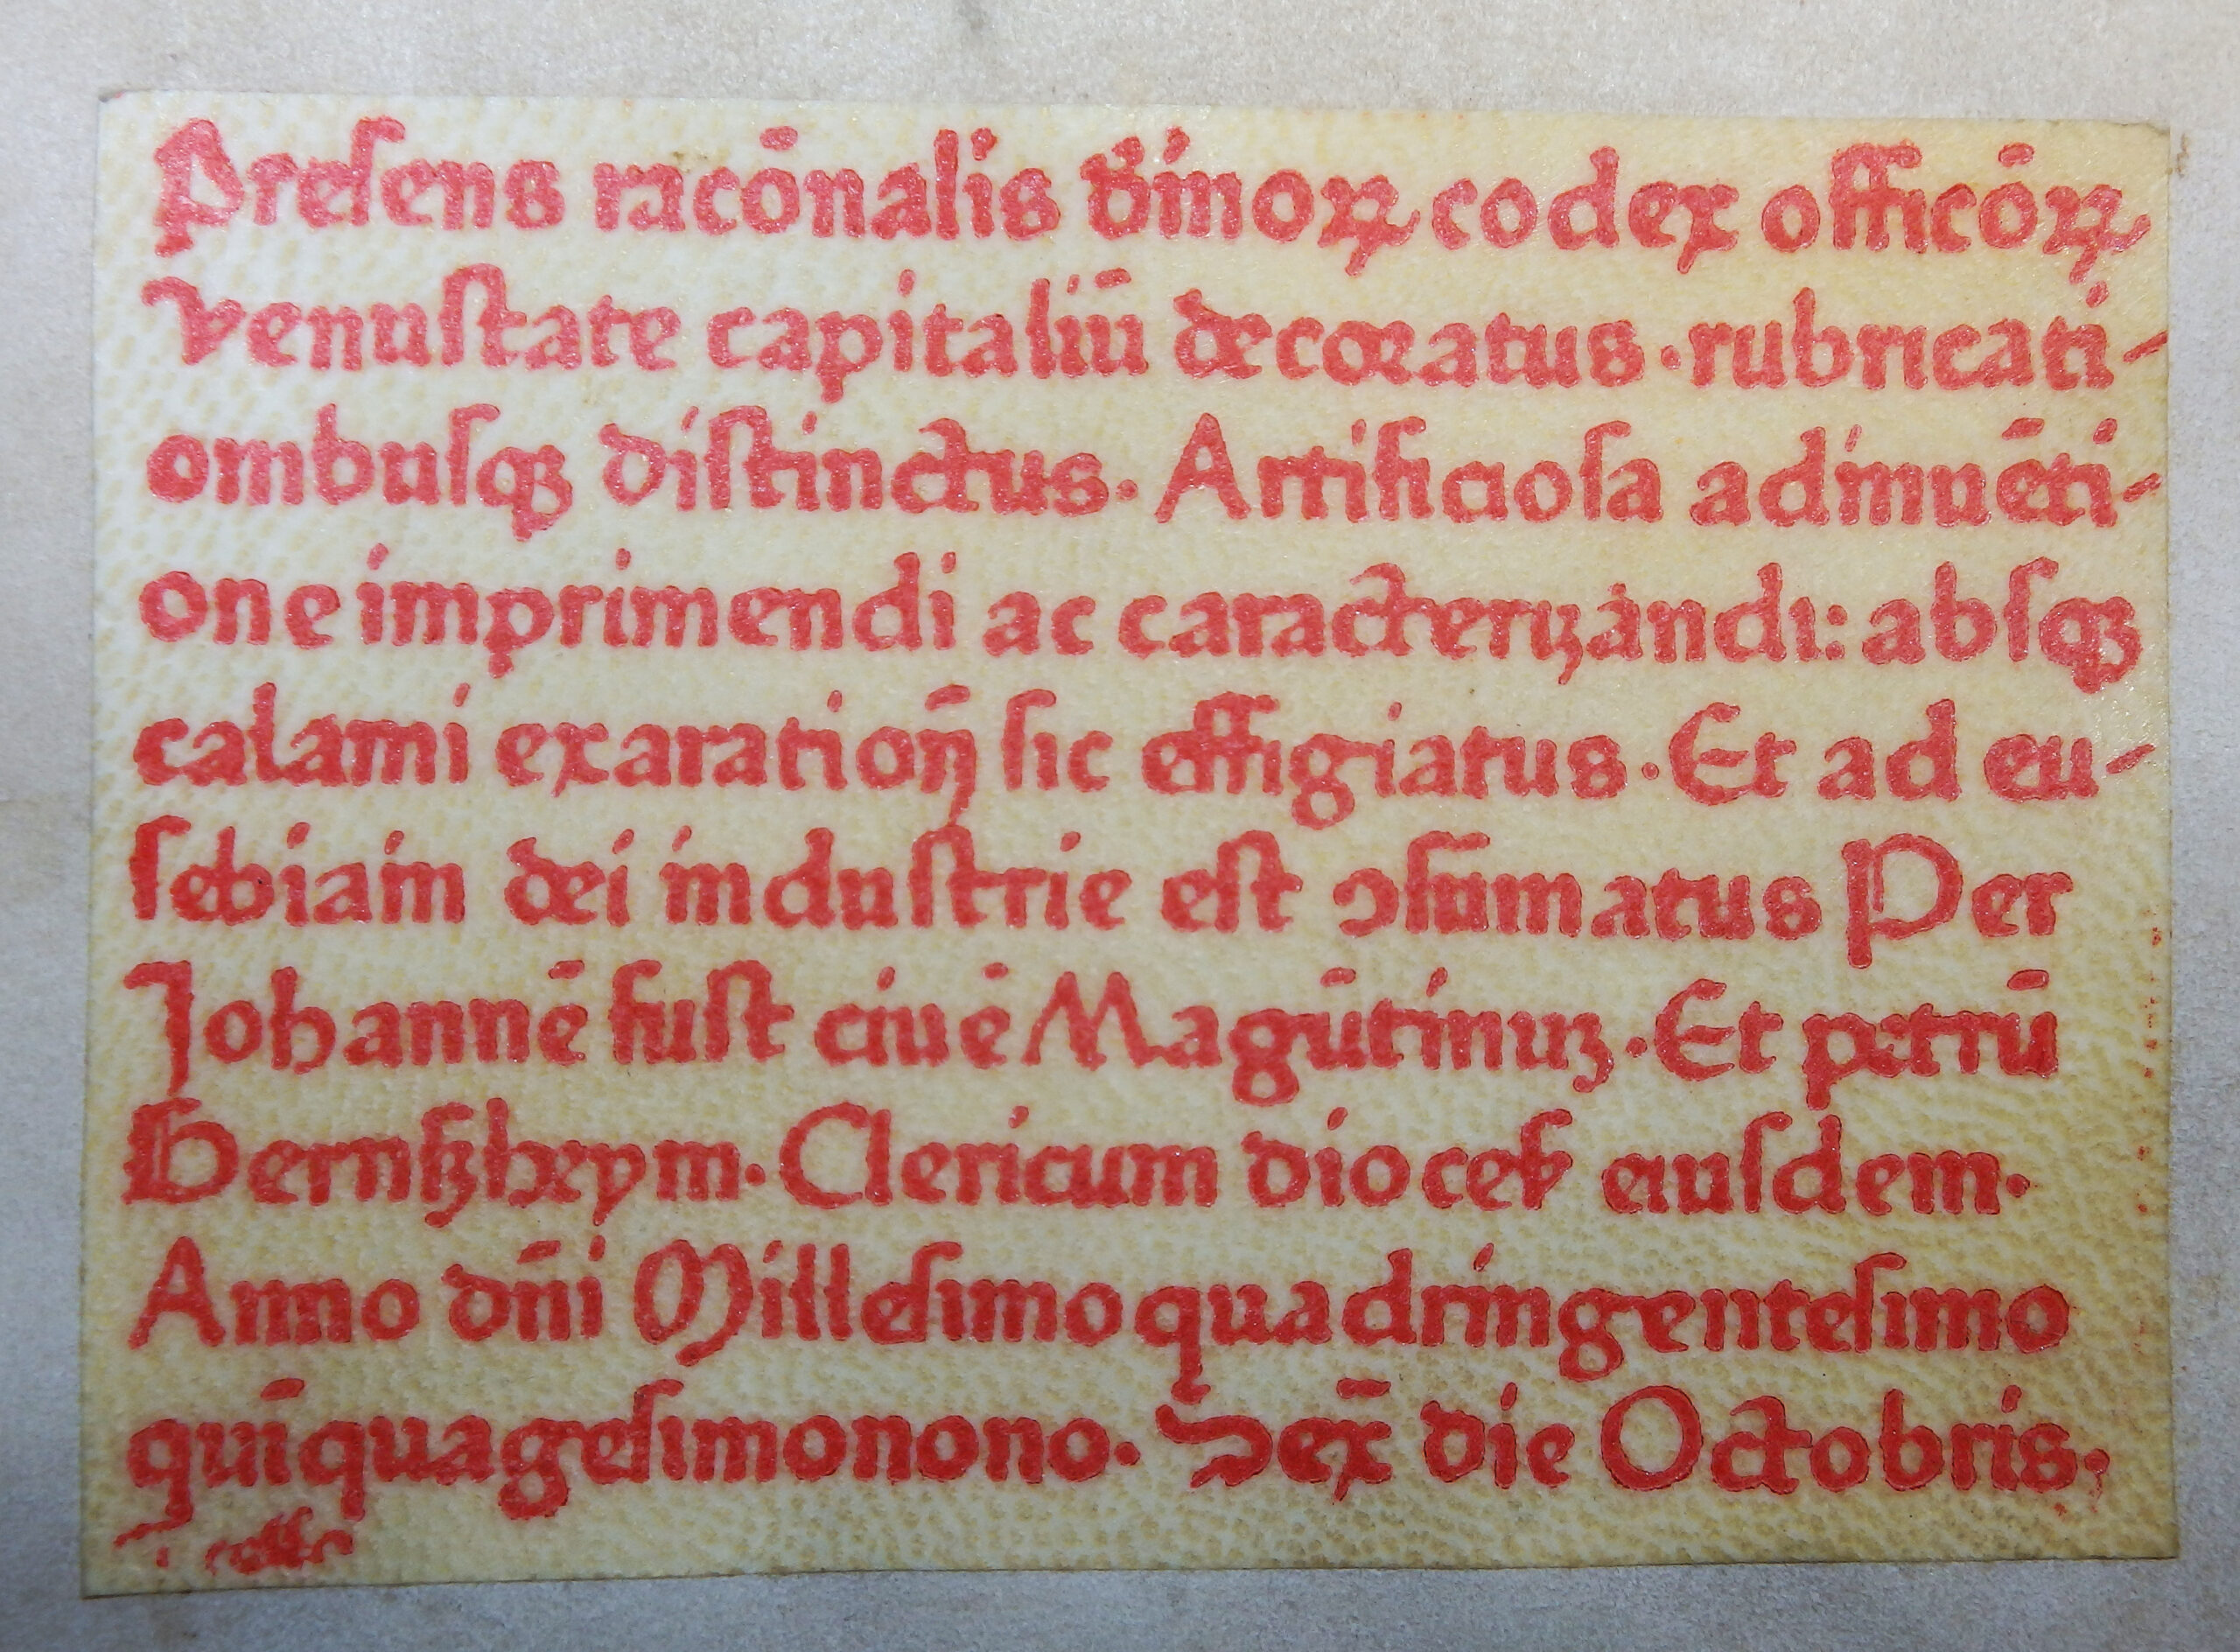 Preſens racōnalis díuinoꝝ codex officōꝝ
venuſtate capitaliū decoratus · rubricati-
onibuſqꝫ diſtinctus. Artificioſa adinuēti-
one imprimendi ac caracteriꝫandi: abſqꝫ
calami exarationꝫ ſic effigiatus. Et ad eu-
ſebiam dei induſtrie eſt ↄſūmatus Per
Johannē fuſt ciuē Magūtinuꝫ. Et petrū
Gernſꝫheym. Clericum dioceſ eiuſdem.
Anno dn̄i Milleſimo quadringenteſimo
quīquageſimonono. Sex̄ die Octobris.